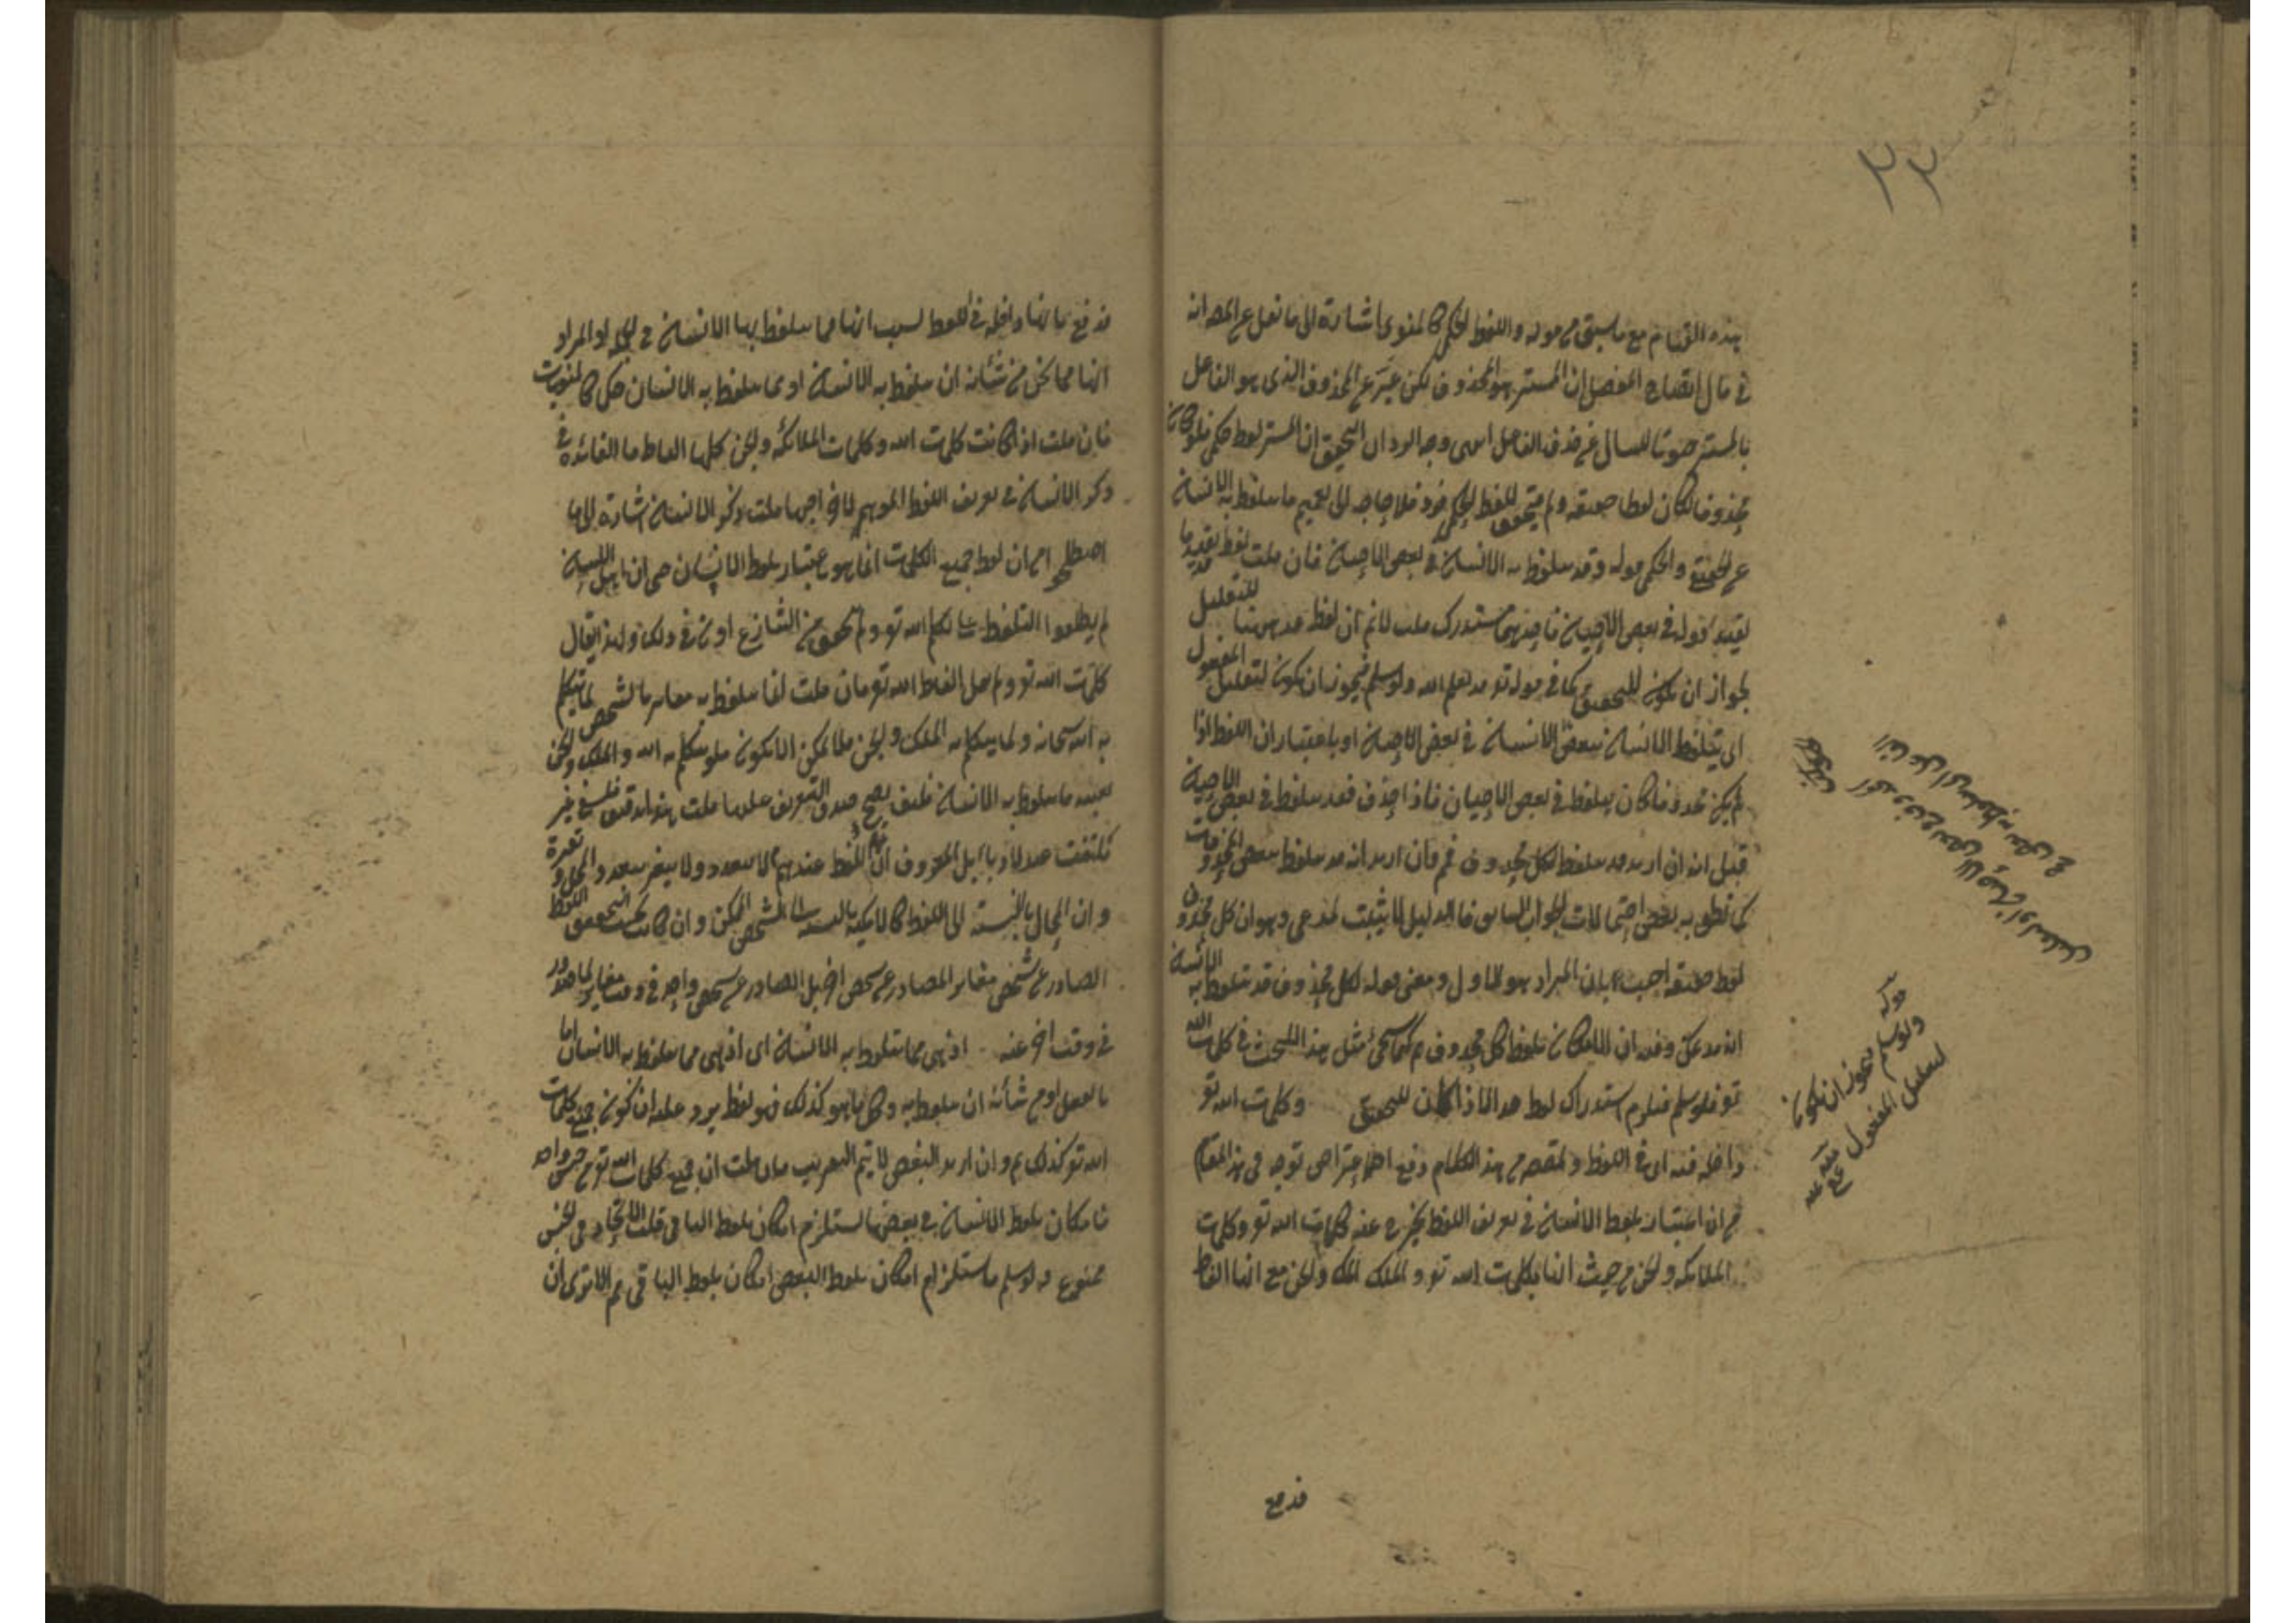 ٢٣
بهذه القيام مع ما سبق من قوله واللفظ الحكمي كالمنوي اشارة الى ما نقل عن المص انه
في قال ايضاح المفصل ان المستتر هو المحذوف لكن عبر عن المحذوف الذي هو الفاعل
بالمستتر صونا للسان عن حذف الفاعل وجه الرد ان التحقيق ان المستتر لفظ حكمي فلو كان
محذوفا لكان لفظا حقيقة ولم يتحقق للفظ الحكمي فرد فلا حاجة الى تعميم ما يتلفظ به الانسان
عن الحقيقي والحكمي قوله وقد يتلفظ به الانسان في بعض الاحيان فان قلت لفظ قد
لتقييد قوله في بعض الاحيان مستدرك قلت لا نم ان لفظ قد ههنا للتقليل
لجواز ان يكون للتحقيق كما في قوله تع قد يعلم الله ولو سلم فيجوز ان يكون لتقليل المفعول
اى يتلفظ الانسان ببعض الانسان في بعض الاحيان او باعتبار ان اللفظ اذا
لم يكن محذوفا كان يتلفظ في بعض الاحيان فاذا حذف فقد يتلفظ في بعض الاحيان
قيل انه ان اريد قد يتلفظ بكل محذوف فم فان اريد انه قد يتلفظ ببعض المحذوفات
كما نطق به بعض احتمالات الجواب السابق فالدليل لا يثبت المدعى وهو ان كل محذوف
لفظ حقيقة اجيب بان المراد هو الاول ومعنى قوله لكل محذوف قد يتلفظ به الانسان
انه يمكن وفيه ان الامكان تلفظ كل محذوف م كما سيجئ مثل هذا البحث في كلمات الله
تع فلو سلم فيلزم استدراك لفظ قد الا اذا كان للتحقيق وكلمات الله تع
داخلة فيه اى في اللفظ والمقصود من هذا الكلام دفع اعتراض توجه في هذا المقام
من ان اعتبار تلفظ الانسان في تعريف اللفظ يخرج عنه كلمات الله تع وكلمات
الملائكة والجن من حيث انها كلمات الله تع والملك والجن مع انها الفاظ
فدفع
قوله
ولو سلم فيجوز ان يكون
لتقليل المفعول
فدفع بانها داخلة في اللفظ لسبب انها مما يتلفظ بها الانسان في الجملة او المراد
انها مما من شأنه ان يتلفظ به الانسان او مما يتلفظ به الانسان حكما كالمنويات
فان قلت اذا كانت كلمات الله وكلمات الملائكة والجن كلها الفاظا ما الفائدة في
ذكر الانسان في تعريف اللفظ الموهم لاخراجها قلت ذكر الانسان اشارة الى ما
اصطلحوا من ان لفظ جميع الكلمات انما هو باعتبار تلفظ الانسان حتى ان اهل السنة
لم يطلقوا التلفظ على تكلم الله تع ولم يتحقق من الشارع اذن في ذلك ولهذا يقال
كلمات الله تع ولم يقل الفاظ الله تع فان قلت ما يتلفظ به مغاير بالشخص لما يتكلم
به الله سبحانه ولما يتكلم به الملك والجن فلا يمكن ان يكون ما يتكلم به الله والملك والجن
بعينه ما يتلفظ به الانسان فكيف يصح صدق التعريف عليها قلت هذا تدقيق فلسفي غير
ملتفت عند ارباب العرف ان اللفظ عندهم لا يتعدد ولا يتغير بتعدد المحل وتغيره
وان المحال بالنسبة الى اللفظ كالامكنة بالنسبة الى الشخص الممكن وان كانت بحسب التحقيق اللفظ
الصادر عن شخص مغاير الصادر عن شخص اخر بل الصادر عن شخص واحد في وقت مغاير لما صدر
في وقت اخر عنه اذ هي مما يتلفظ به الانسان اى اذ هي مما يتلفظ به الانسان اما
بالفعل او من شأنه ان يتلفظ به وكل ما هو كذلك فهو لفظ يرد عليه ان كون جميع كلمات
الله تع كذلك م وان اريد البعض لا يتم التعريف فان قلت ان جميع كلمات الله تع من جنس واحد
فامكان تلفظ الانسان في بعضها يستلزم امكان تلفظ الباقي قلت الاتحاد في الجنس
ممنوع ولو سلم فاستلزام امكان تلفظ البعض امكان تلفظ الباقي م الا ترى ان